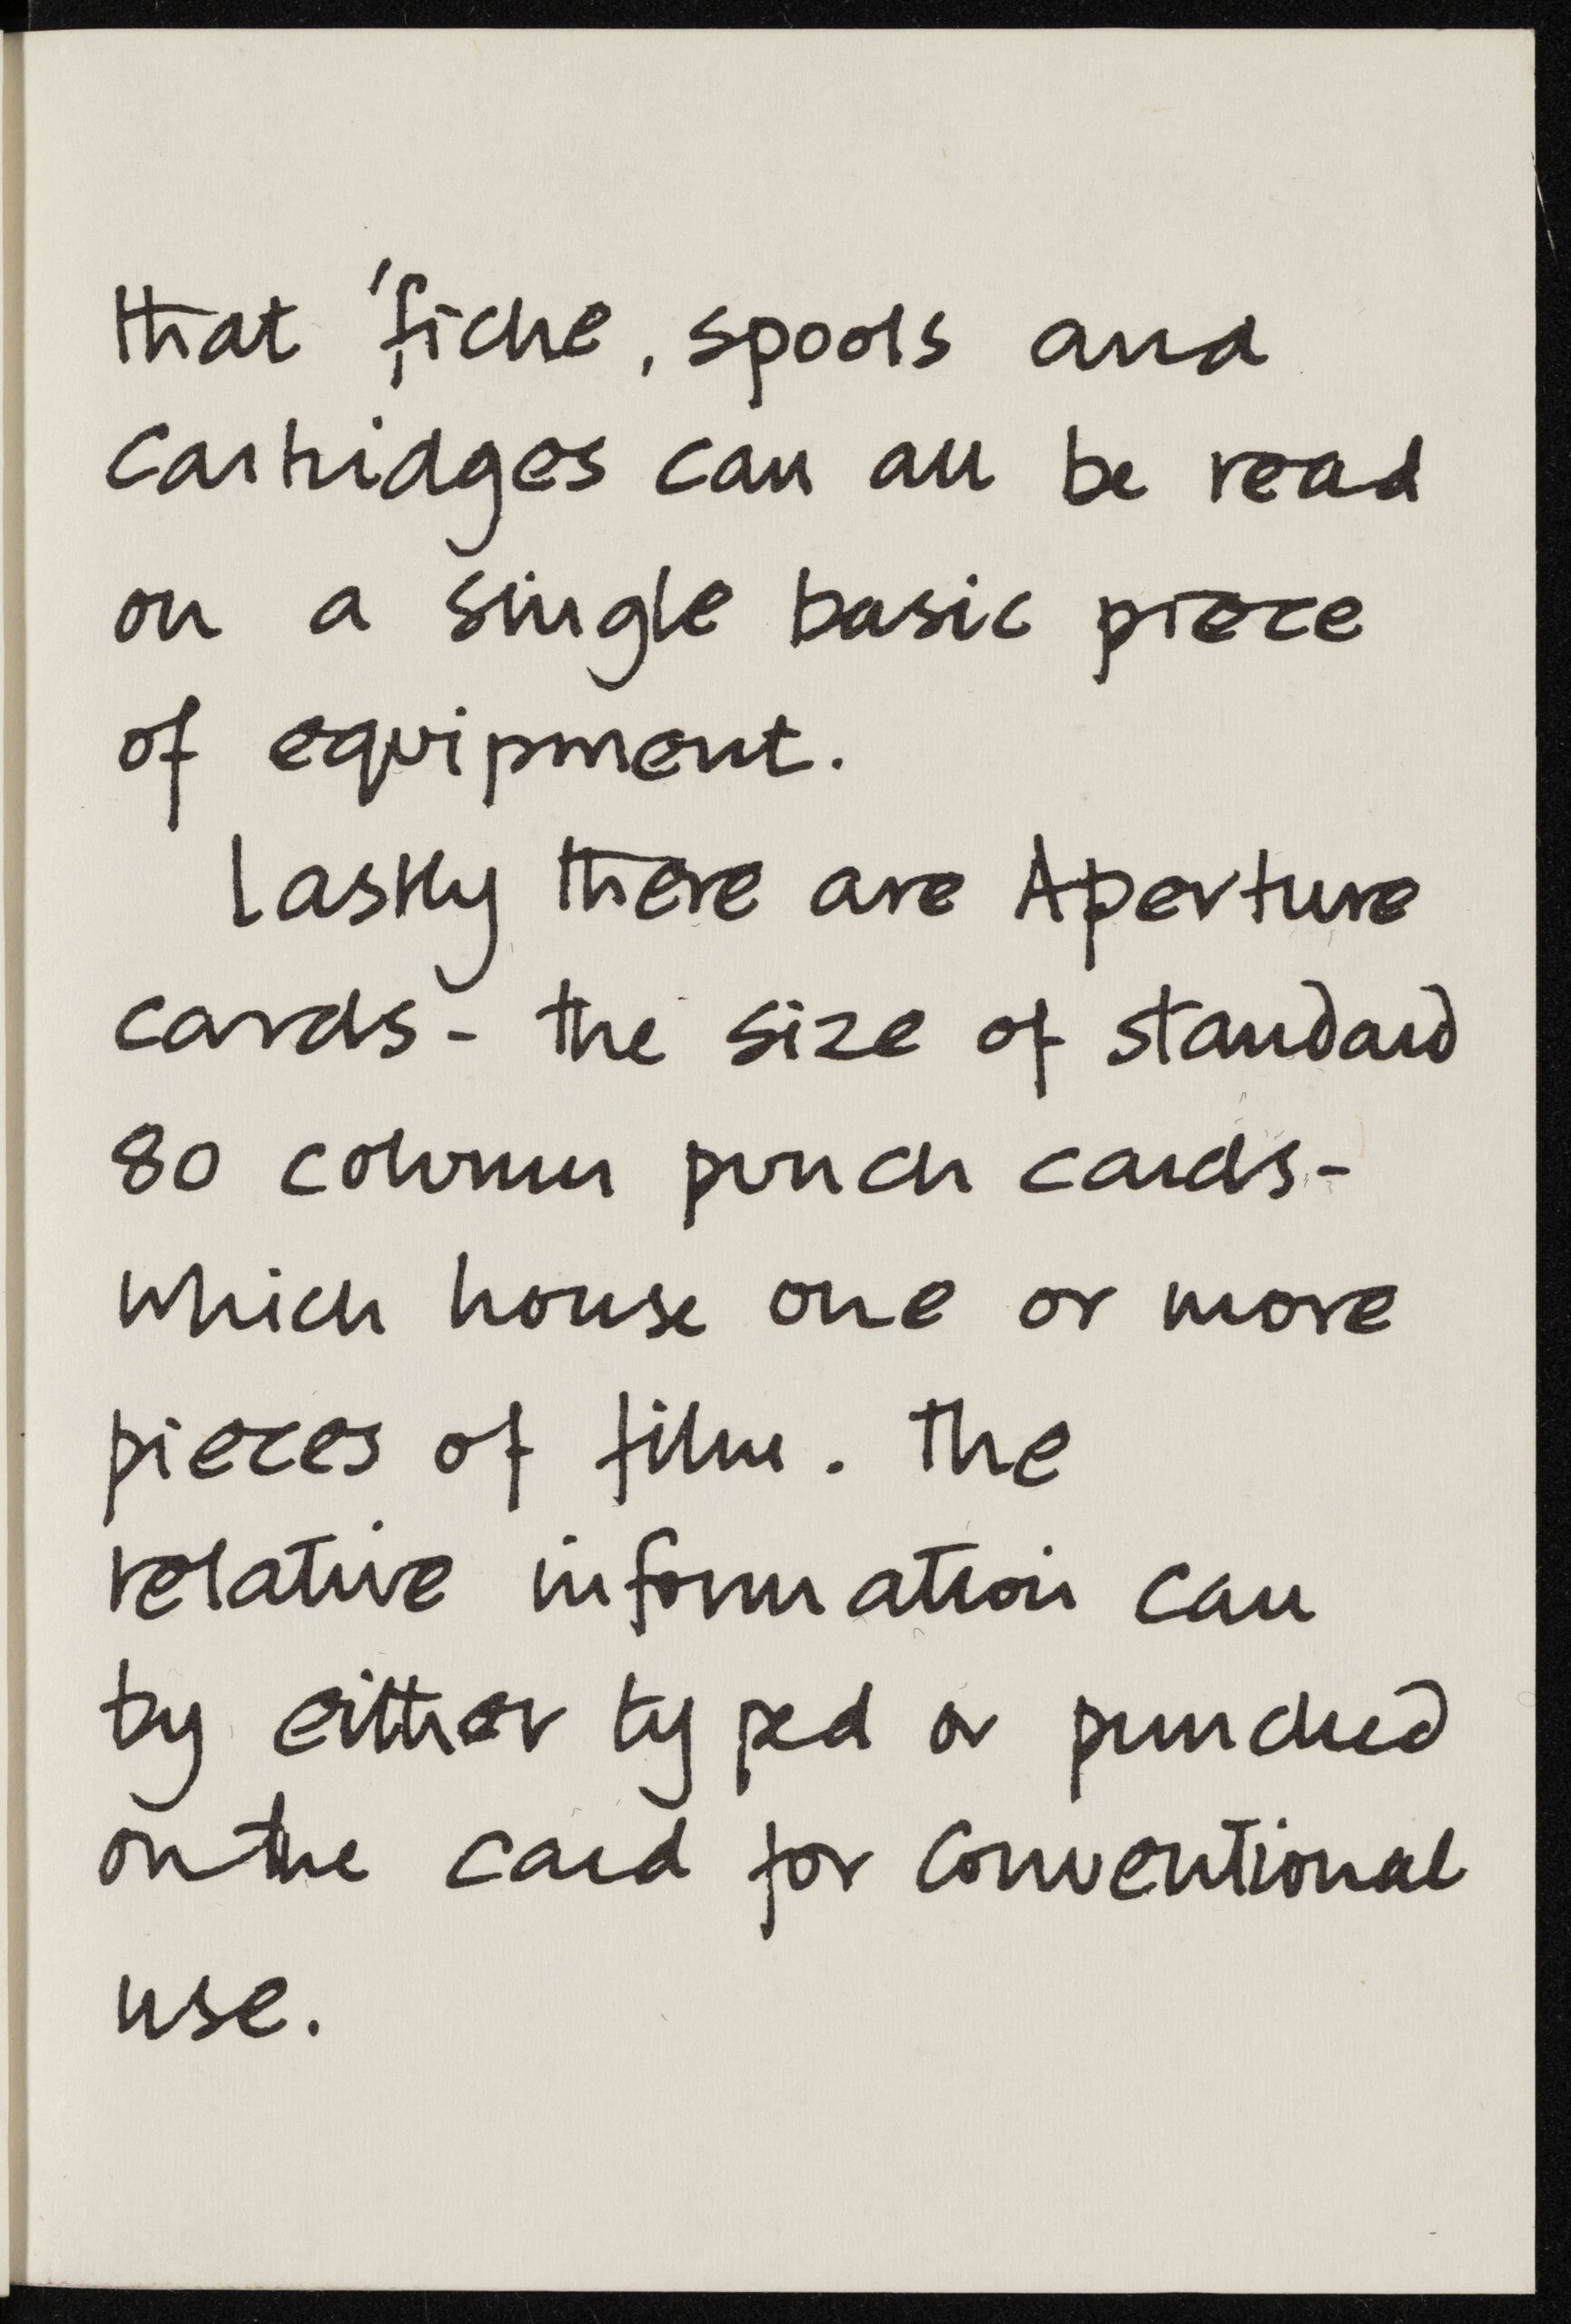 that 'fiche, spools and
cartridges can all be read
on a single basic piece
of equipment.
Lastly there are Aperture
cards - the size of standard
80 column punch cards -
which house one or more
pieces of film. The
relative information can
by either typed or punched
on the card for conventional
use.